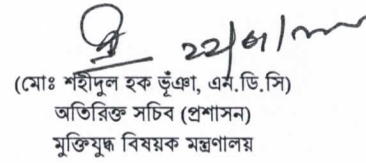 ২২/৫/
(মোঃ শহীদুল হক ভূঁঞা, এন.ডি.সি)
অতিরিক্ত সচিব (প্রশাসন)
মুক্তিযুদ্ধ বিষয়ক মন্ত্রণালয়